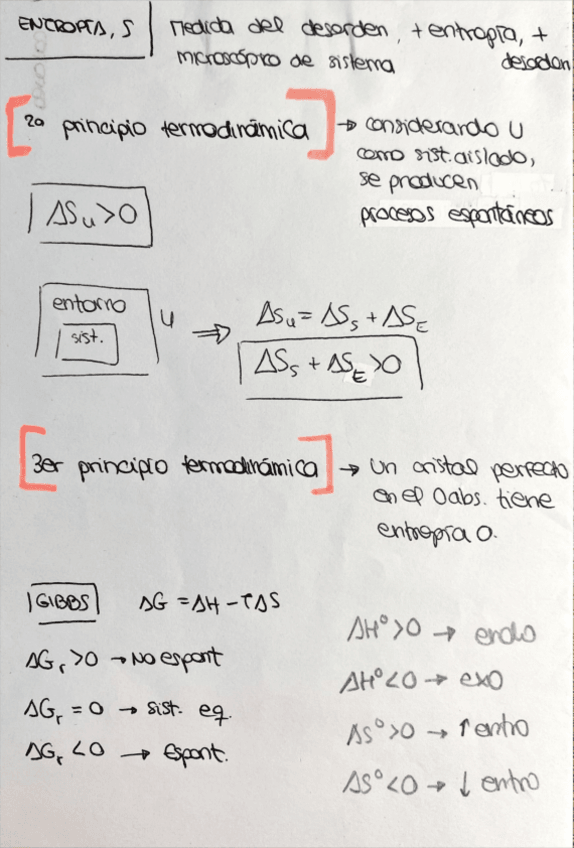 ENTROPÍA, S
Medida del desorden, + entropía, +
microscópro de sistema desordan
2o principio termodinámica → considerando U
como sist. aislado,
se producen
procesos espontáneos
ΔSu > 0
entorno
sist.
U
⇒
ΔSu = ΔSs + ΔSE
ΔSs + ΔSE > 0
3er principio termodinámica → un cristal perfecto
en el 0 abs. tiene
entropía 0.
GIBBS ΔG = ΔH - TΔS
ΔGr > 0 → No espont
ΔGr = 0 → sist. eq.
ΔGr < 0 → Espont.
ΔH° > 0 → endo
ΔH° < 0 → exo
ΔS° > 0 → ↑ entro
ΔS° < 0 → ↓ entro